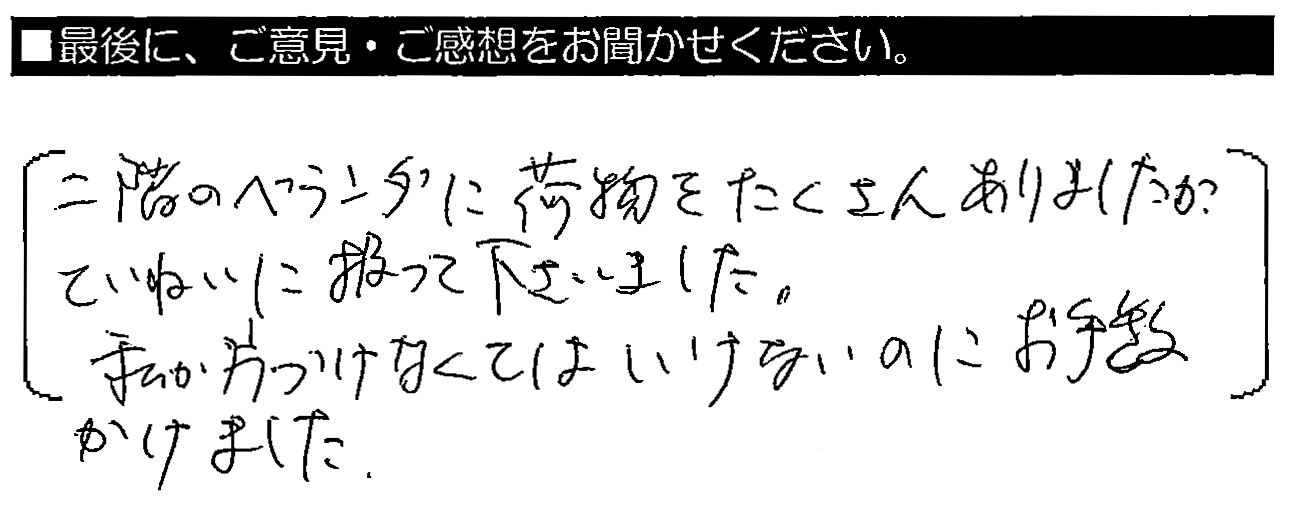 ■最後に、ご意見・ご感想をお聞かせください。
二階のベランダに荷物をたくさんありましたが
ていねいに扱って下さいました。
私が片づけなくてはいけないのにお手数
かけました.